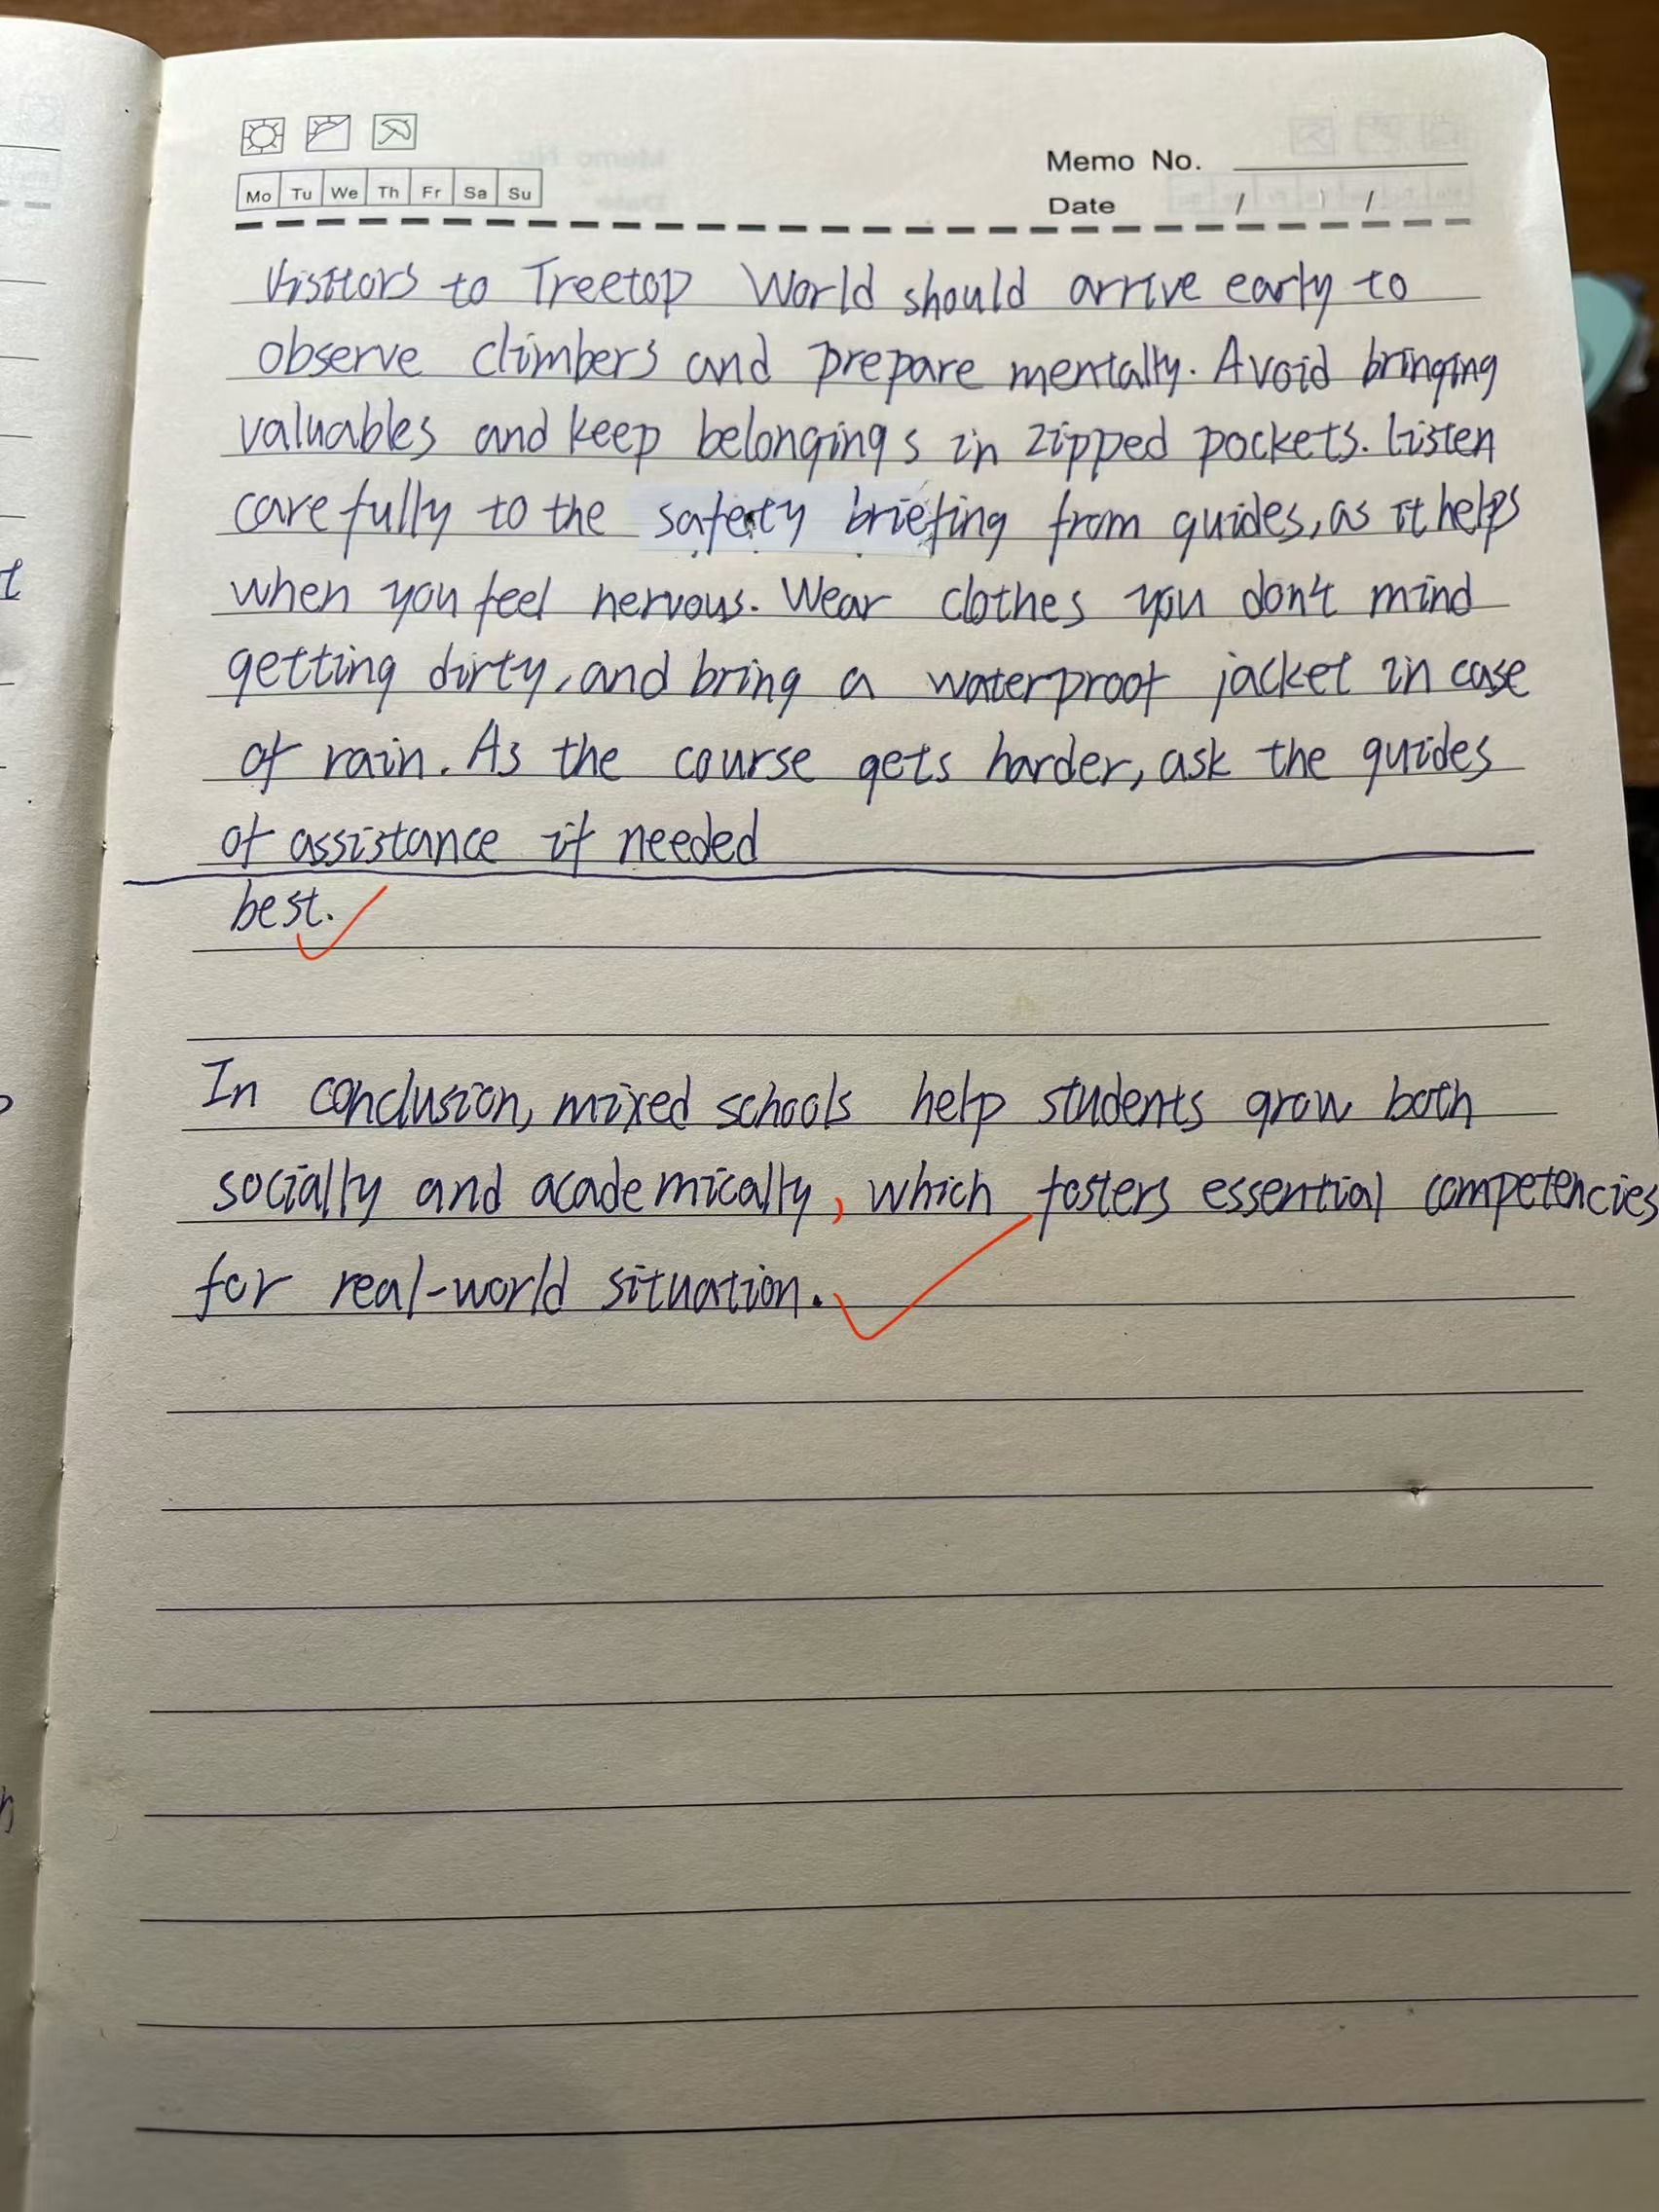 Memo No.
Mo Tu We Th Fr Sa Su
Date / /
Visitors to Treetop World should arrive early to
observe climbers and prepare mentally. Avoid bringing
valuables and keep belongings in zipped pockets. Listen
carefully to the safety briefing from guides, as it helps
when you feel nervous. Wear clothes you don't mind
getting dirty, and bring a waterproof jacket in case
of rain. As the course gets harder, ask the guides
of assistance if needed
best.
In conclusion, mixed schools help students grow both
socially and academically, which fosters essential competencies
for real-world situation.